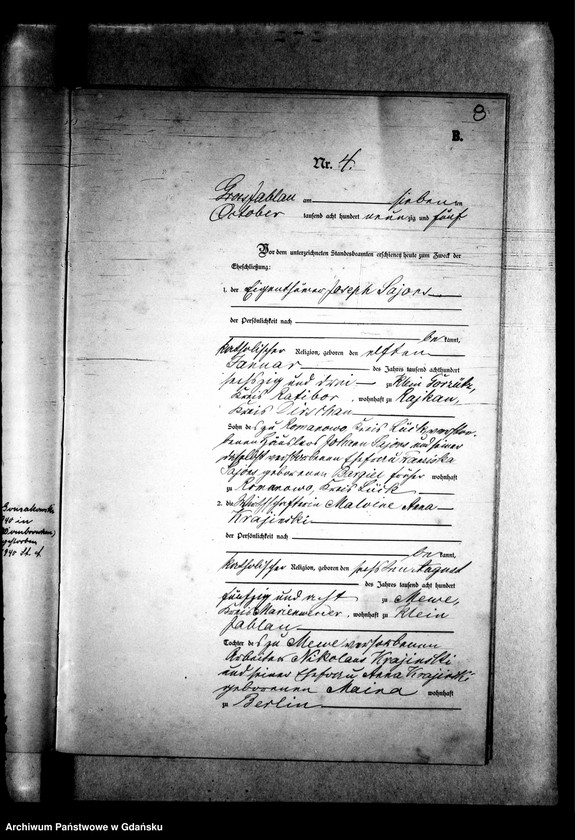 8
B.
Nr. 4.
Gross Jablau am sieben ten
October tausend acht hundert neun zig und fünf
Vor dem unterzeichneten Standesbeamten erschienen heute zum Zweck der
Eheschließung:
1. der Eigenthümer Joseph Sajons
der Persönlichkeit nach
be kannt,
katholischer Religion, geboren den elften
Januar des Jahres tausend achthundert
sechszig und drei zu Klein
Kreis Ratibor, wohnhaft zu Rajkau,
Kreis Dirschau
Sohn des zu Romanowo Kreis Lück verstor-
benen Häuslers Johann Sajons und seiner
daselbst verstorbenen Ehefrau Franziska
Sajons geborenen früher wohnhaft
zu Romanowo, Kreis Lück
2. die Wirthschafterin Malvine Anna
Krajinski
der Persönlichkeit nach
be kannt,
katholischer Religion, geboren den sechsten August
des Jahres tausend acht hundert
fünfzig und acht zu Mewe,
Kreis Marienwerder, wohnhaft zu Klein
Jablau
Tochter des zu Mewe verstorbenen
Arbeiter Nikolaus Krajinski
und seiner Ehefrau Anna Krajinski
geborenen Maina wohnhaft
zu Berlin
940 in
gestorben
Archiwum Państwowe w Gdańsku